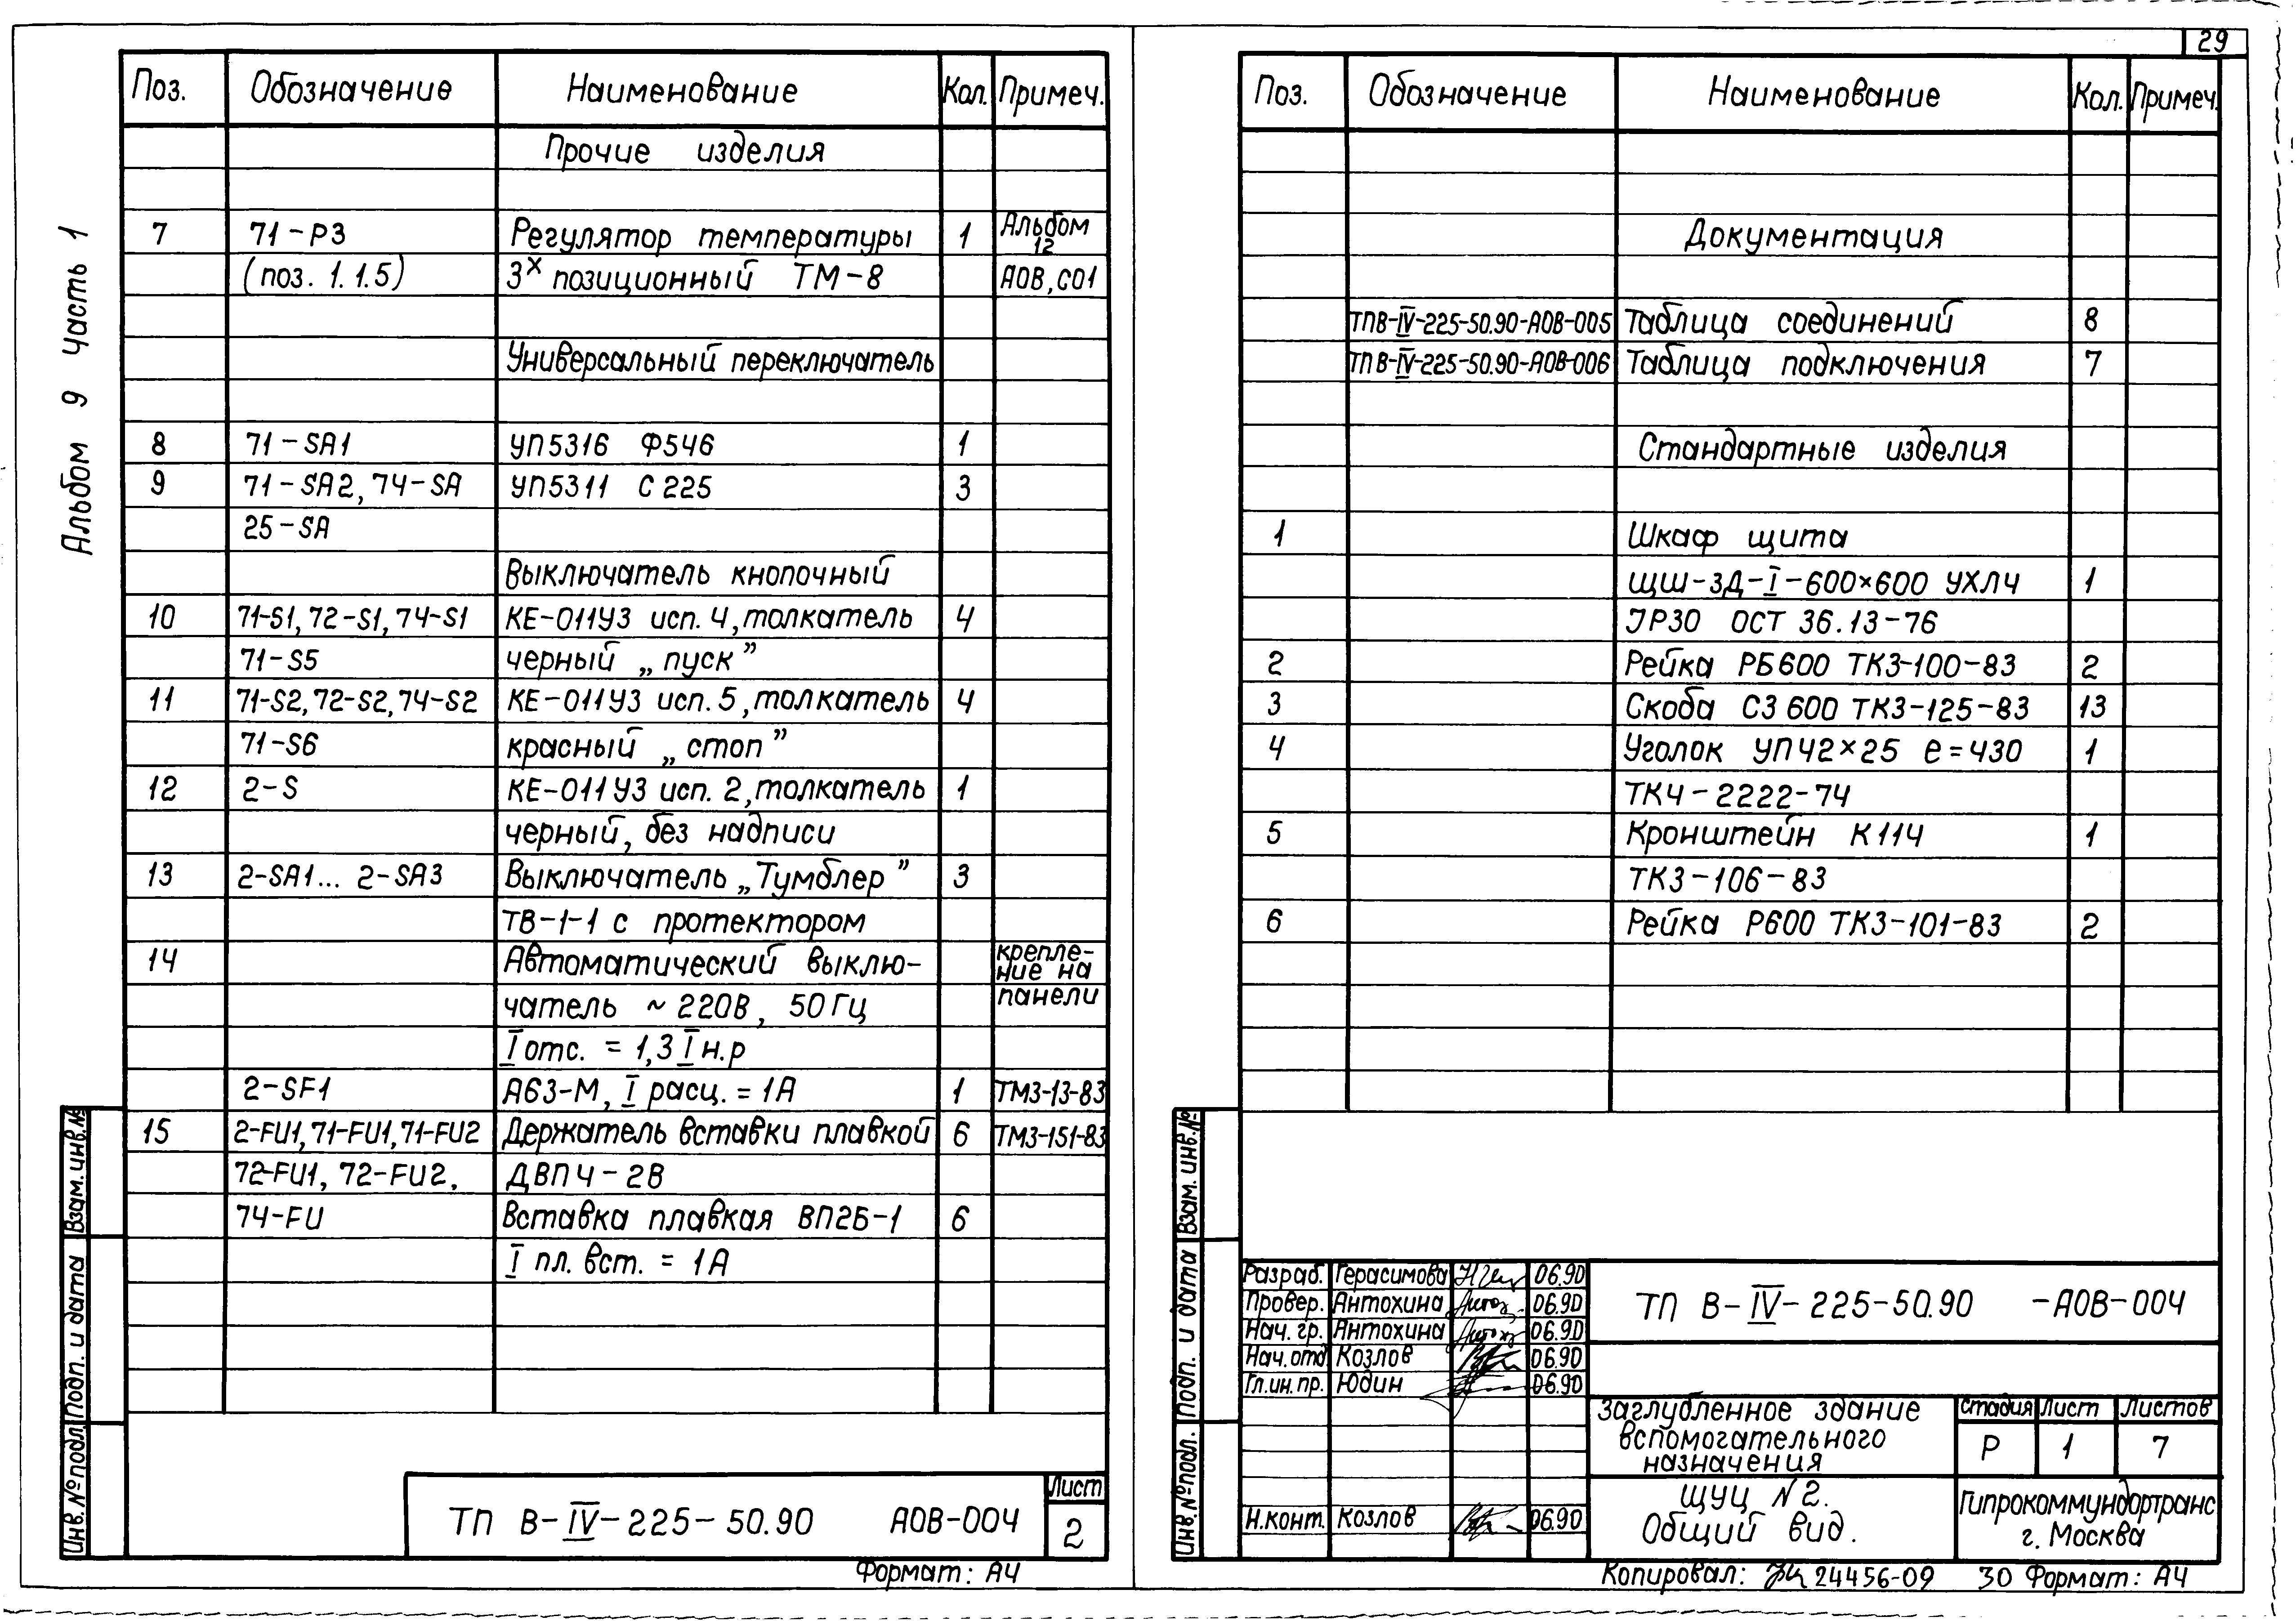 Альбом 9 Часть 1
Поз. Обозначение Наименование Кол. Примеч.
Прочие изделия
7 71-Р3 Регулятор температуры 1 Альбом 12
(поз. 1.1.5) 3х позиционный ТМ-8 АОВ, СО1
Универсальный переключатель
8 71-SA1 УП5316 Ф546 1
9 71-SA2, 74-SA УП5311 С225 3
25-SA
Выключатель кнопочный
10 71-S1, 72-S1, 74-S1 КЕ-011У3 исп. 4, толкатель 4
71-S5 черный „пуск”
11 71-S2, 72-S2, 74-S2 КЕ-011У3 исп. 5, толкатель 4
71-S6 красный „стоп”
12 2-S КЕ-011У3 исп. 2, толкатель 1
черный, без надписи
13 2-SA1... 2-SA3 Выключатель „Тумблер” 3
ТВ-1-1 с протектором
14 Автоматический выклю- крепле-
ние на
чатель ~ 220В, 50Гц панели
I отс. = 1,3 I н.р
2-SF1 А63-М, I расц. = 1А 1 ТМ3-13-83
15 2-FU1, 71-FU1, 71-FU2 Держатель вставки плавкой 6 ТМ3-151-83
72-FU1, 72-FU2, ДВП4-2В
74-FU Вставка плавкая ВП2Б-1 6
I пл. вст. = 1А
Взам. инв. №
Подп. и дата
Инв. № подл.
ТП В-IV-225-50.90 АОВ-004
Лист
2
Формат: А4
29
Поз. Обозначение Наименование Кол. Примеч.
Документация
ТПВ-IV-225-50.90-АОВ-005 Таблица соединений 8
ТПВ-IV-225-50.90-АОВ-006 Таблица подключения 7
Стандартные изделия
1 Шкаф щита
ЩШ-ЗД-I-600×600 УХЛ4 1
JP30 ОСТ 36.13-76
2 Рейка РБ600 ТК3-100-83 2
3 Скоба С3 600 ТК3-125-83 13
4 Уголок УП42×25 е=430 1
ТК4-2222-74
5 Кронштейн К114 1
ТК3-106-83
6 Рейка Р600 ТК3-101-83 2
Взам. инв. №
Подп. и дата
Инв. № подл.
Разраб. Герасимова 06.90
Провер. Антохина 06.90
Нач. гр. Антохина 06.90
Нач. отд Козлов 06.90
Гл. ин. пр. Юдин 06.90
Н.конт. Козлов 06.90
ТП В-IV-225-50.90 -АОВ-004
Заглубленное здание
вспомогательного
назначения
Стадия Лист Листов
Р 1 7
ЩУЦ N2.
Общий вид.
Гипрокоммундортранс
г. Москва
Копировал: 24456-09 30 Формат: А4